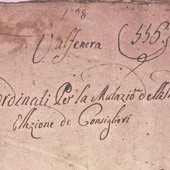 1798
Valfenera (556)
Ordinati Per la Mutazio
Elezione de Consiglieri